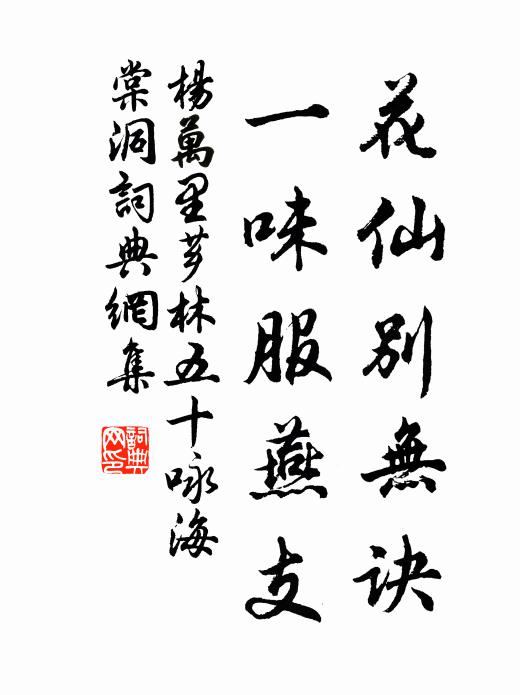 花仙別無訣
一味服燕支
楊萬里芗林五十咏海
棠洞詞典網集
詞典网印